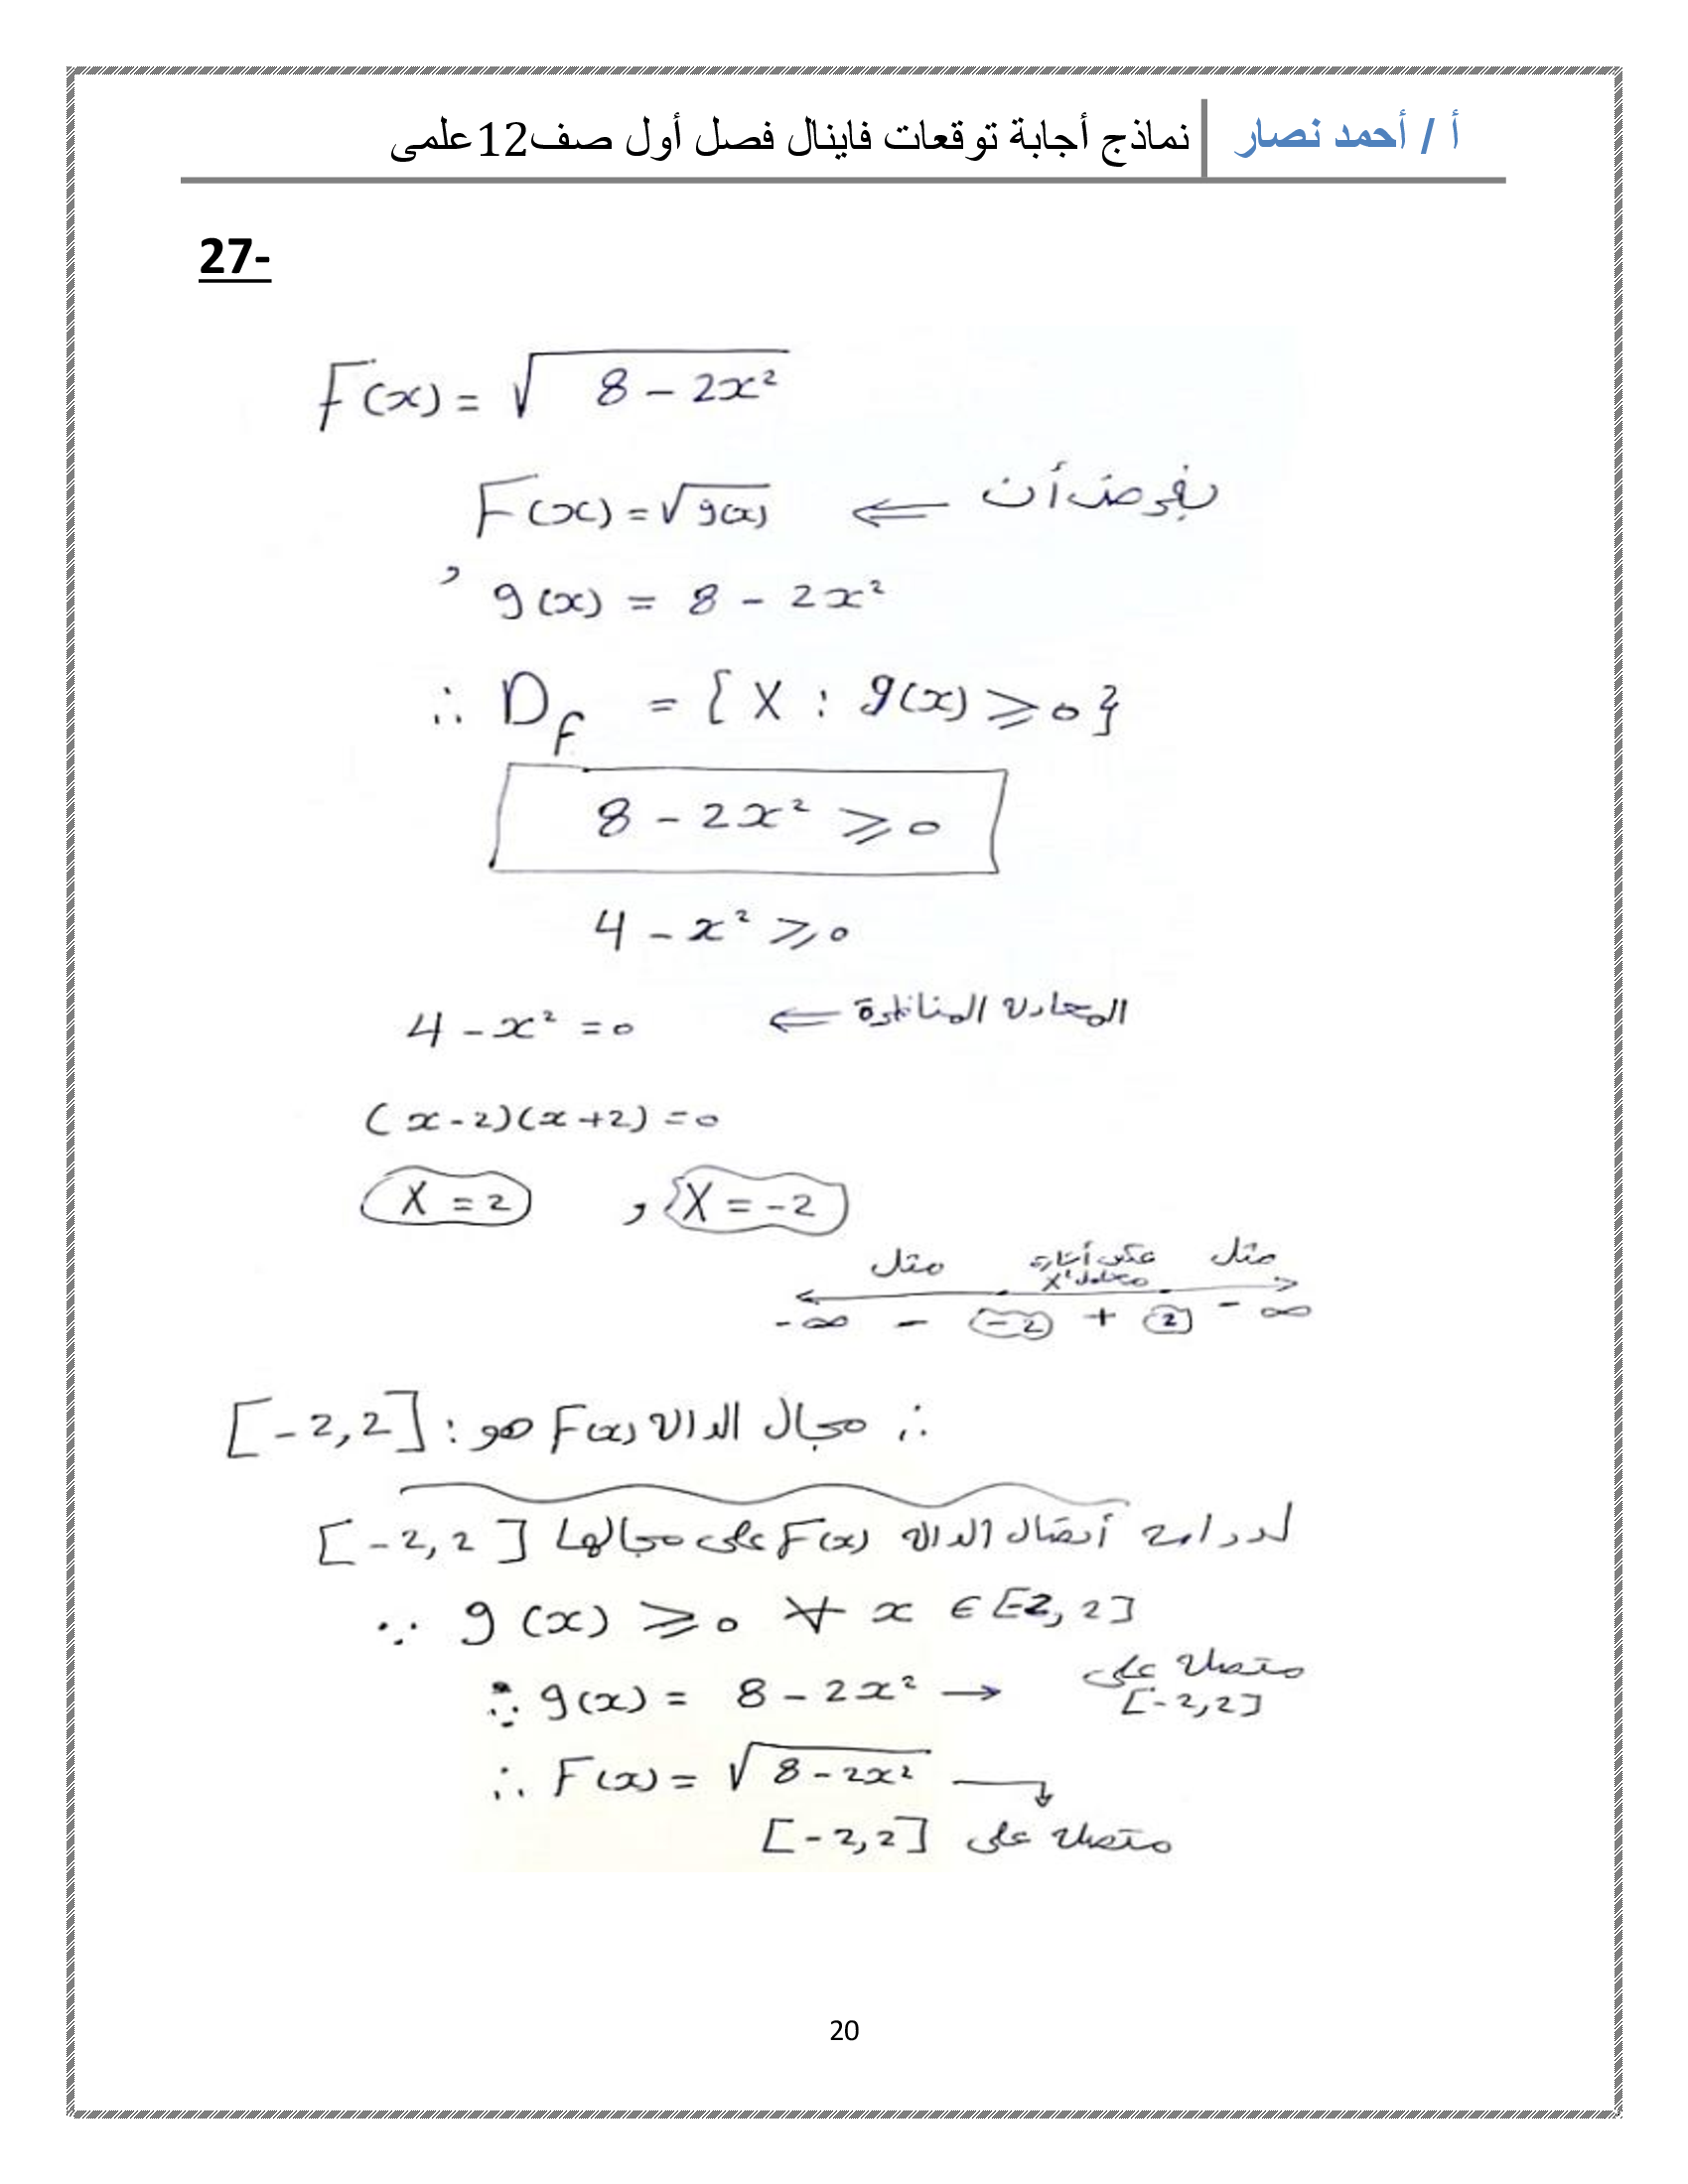 أ / أحمد نصار نماذج أجابة توقعات فاينال فصل أول صف12علمى
27-
F(x) = √(8 - 2x²)
بفرض أن ⇐ F(x) = √g(x)
, g(x) = 8 - 2x²
∴ D_F = { X : g(x) ⩾ 0 }
8 - 2x² ⩾ 0
4 - x² ⩾ 0
المعادلة المناظرة ⇐ 4 - x² = 0
(x-2)(x+2) = 0
X = 2 , X = -2
مثل عكس أشارة معامل x² مثل
-∞ - -2 + 2 - ∞
∴ مجال الدالة F(x) هو : [-2,2]
لدراسة أتصال الدالة F(x) على مجالها [-2,2]
∵ g(x) ⩾ 0 ∀ x ∈ [-2,2]
∵ g(x) = 8 - 2x² → متصلة على [-2,2]
∴ F(x) = √(8 - 2x²)
متصلة على [-2,2]
20